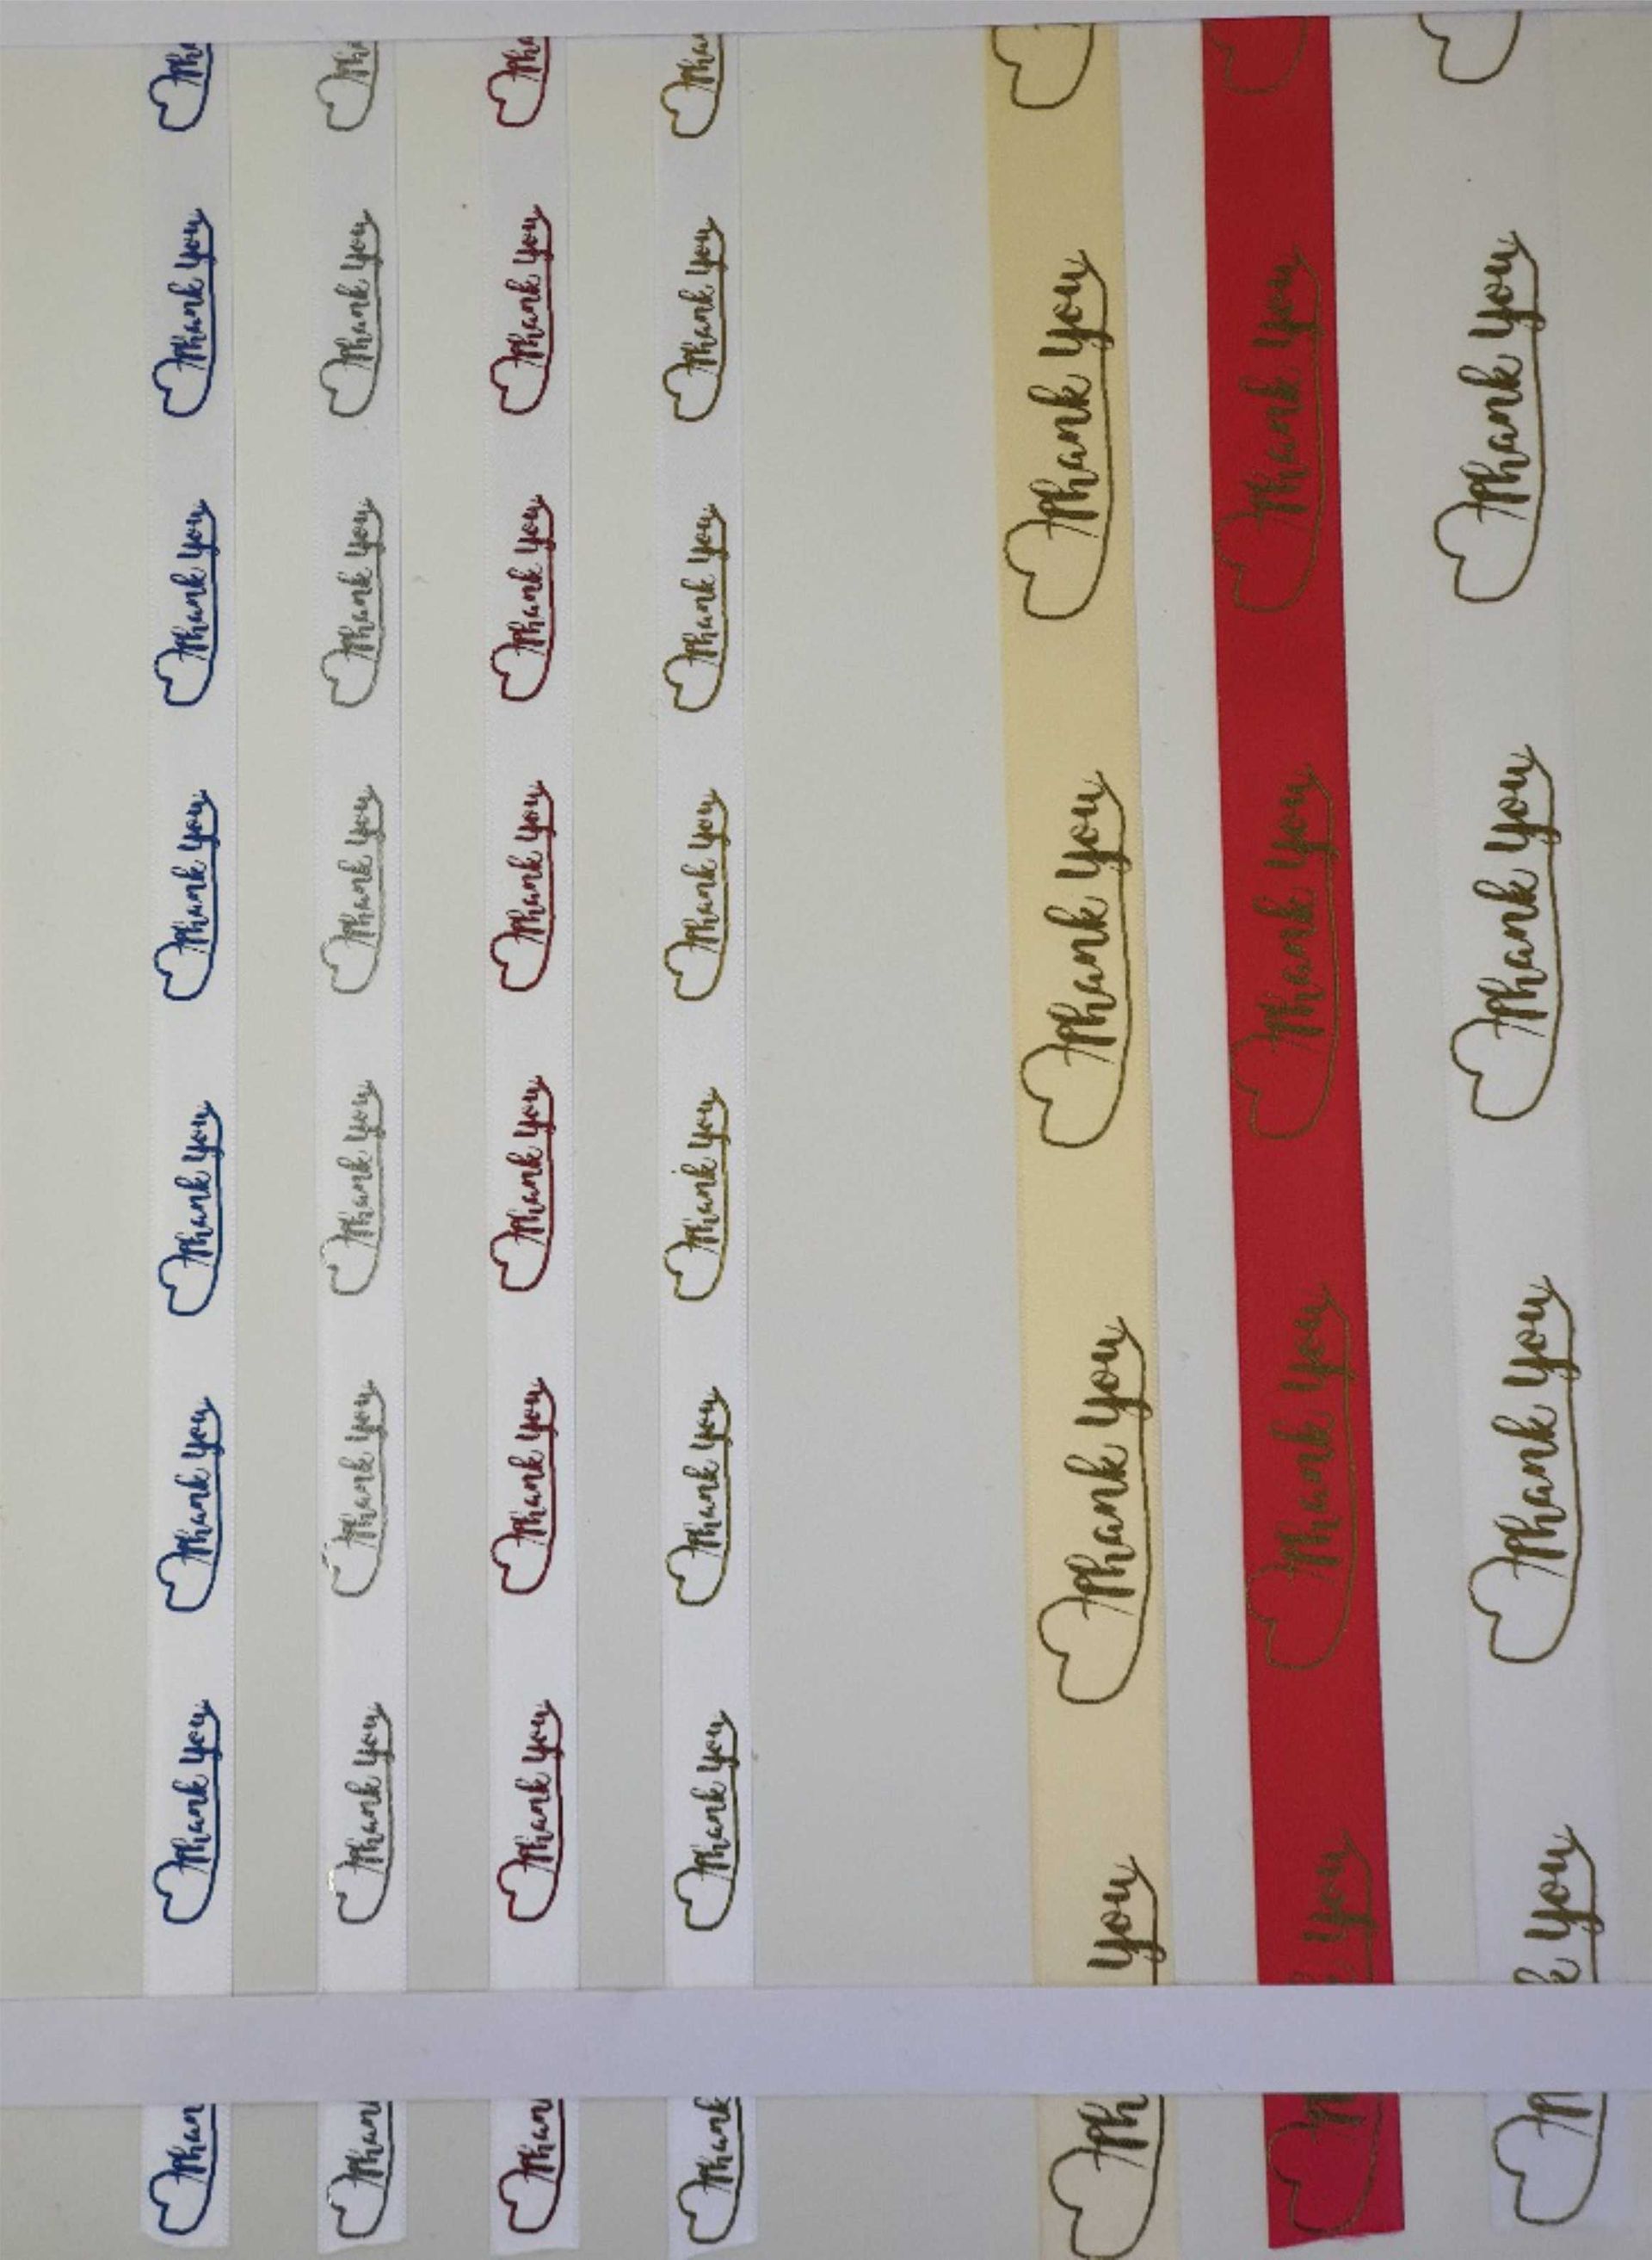 Than Thank You Thank You Thank You Thank You Thank You Thank You Tha
Than Thank You Thank You Thank You Thank You Thank You Thank You Tha
Than Thank You Thank You Thank You Thank You Thank You Thank You Tha
Thank Thank You Thank You Thank You Thank You Thank You Thank You Tha
Th You Thank You Thank You Thank You
Th You Thank You Thank You Thank You
Th k You Thank You Thank You Thank You